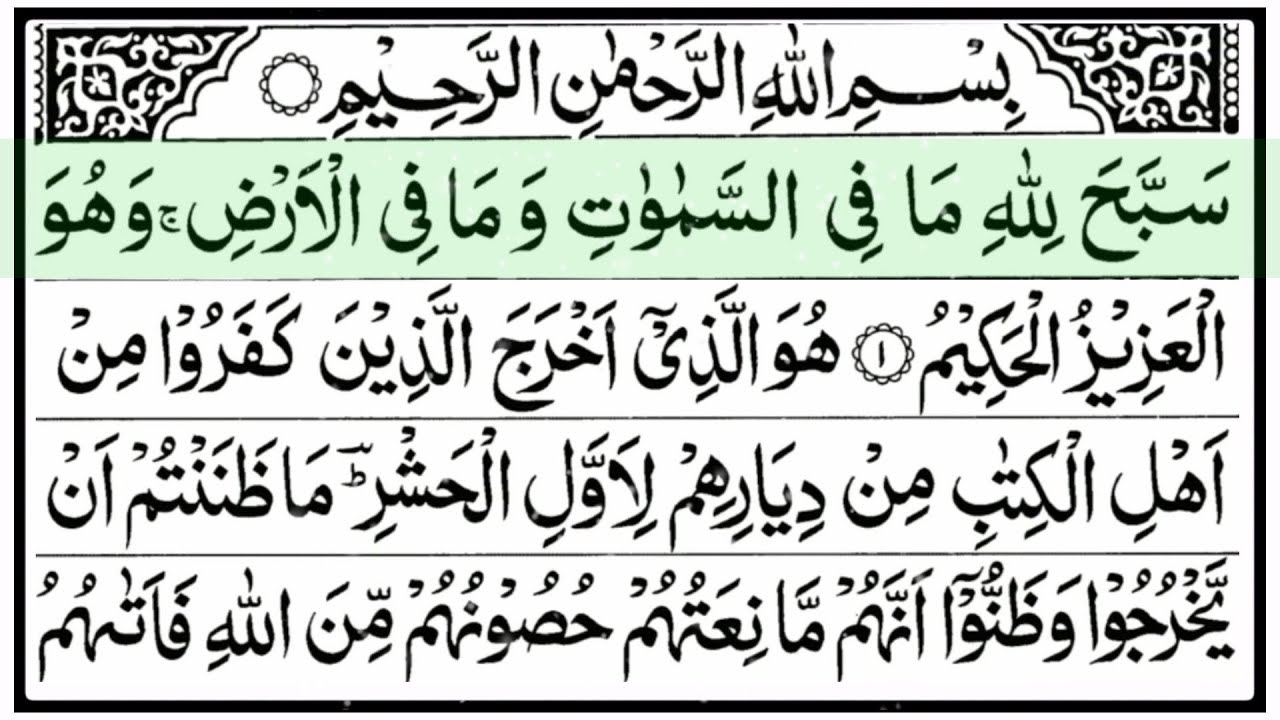 بِسْمِ اللهِ الرَّحْمٰنِ الرَّحِيْمِ
سَبَّحَ لِلّٰهِ مَا فِى السَّمٰوٰتِ وَ مَا فِى الْاَرْضِ ۚ وَ هُوَ
الْعَزِيْزُ الْحَكِيْمُ ١ هُوَ الَّذِىْۤ اَخْرَجَ الَّذِيْنَ كَفَرُوْا مِنْ
اَهْلِ الْكِتٰبِ مِنْ دِيَارِهِمْ لِاَوَّلِ الْحَشْرِ ؔؕ مَا ظَنَنْتُمْ اَنْ
يَّخْرُجُوْا وَ ظَنُّوْۤا اَنَّهُمْ مَّا نِعَتُهُمْ حُصُوْنُهُمْ مِّنَ اللهِ فَاَتٰىهُمُ